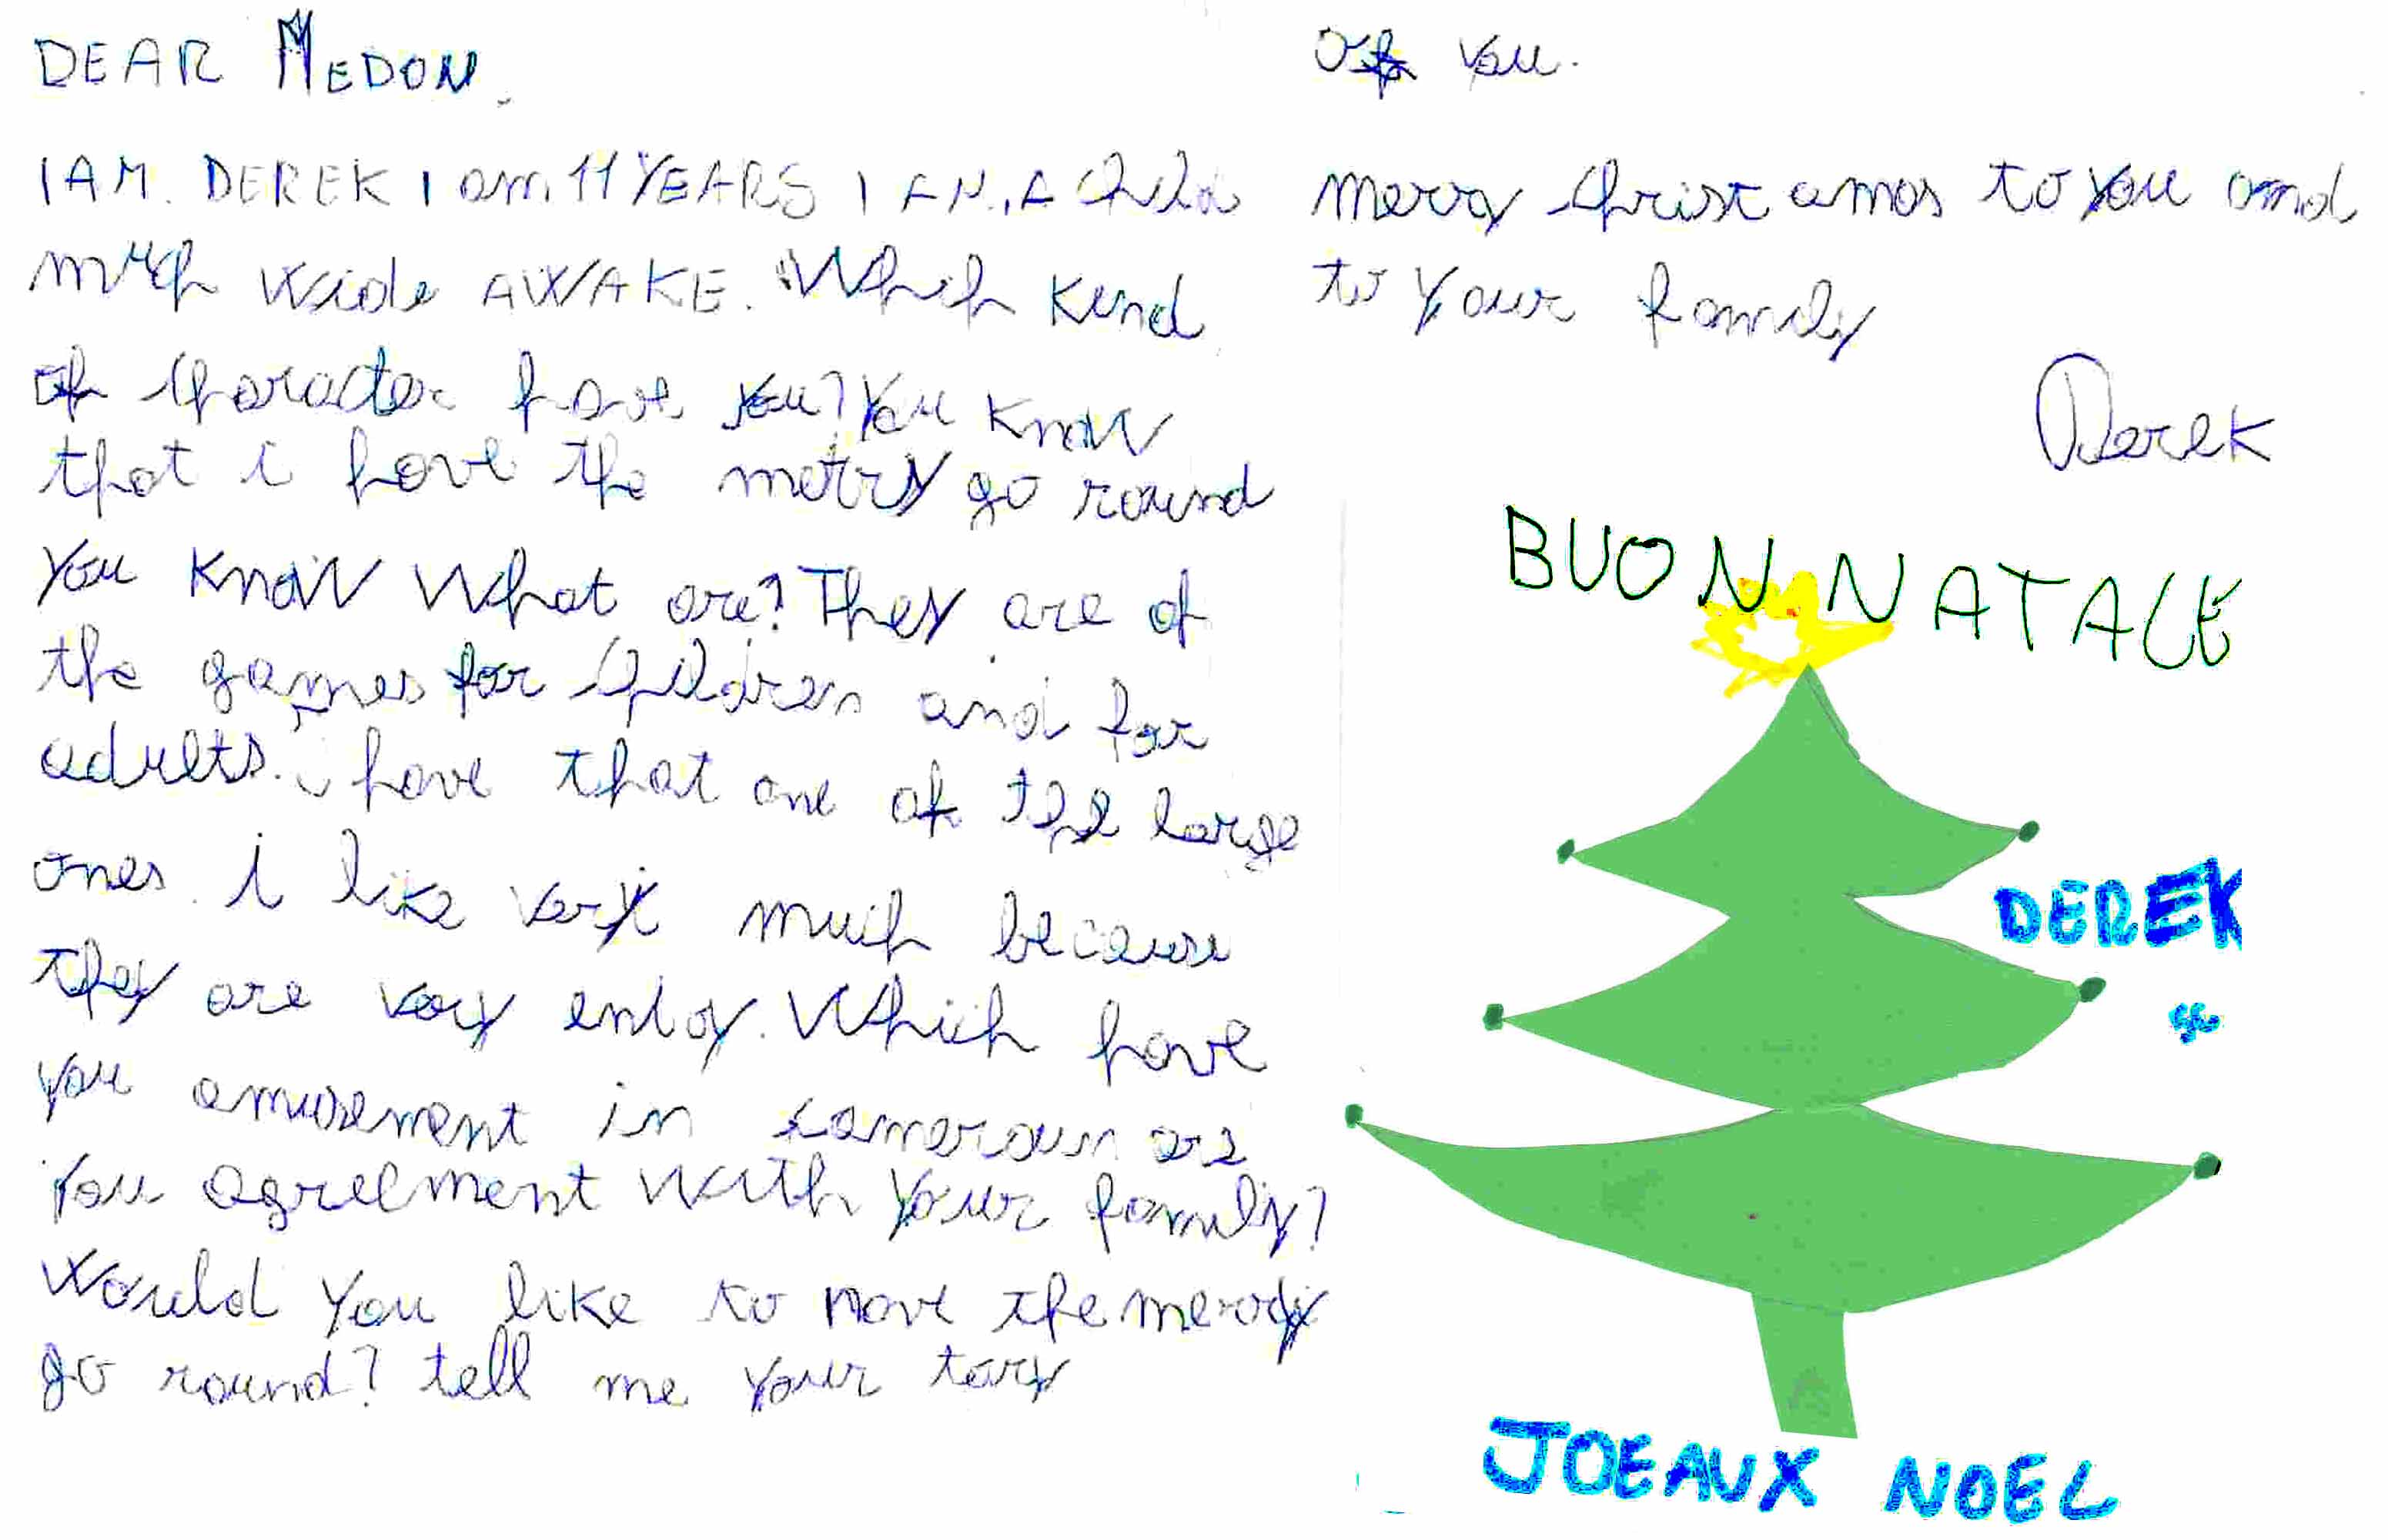 DEAR MEDON,
I AM. DEREK I am 11 YEARS I AM, A child
much wide AWAKE. Which kind
of character have you? You know
that i have the merry go round
You know what are? They are of
the games for children and for
adults. i have that one of the large
ones. i like very much because
they are very enloy. Which have
you amusement in camerour are
you agreement with your family?
Would you like to have the merry
go round? tell me your tory
of you.
merry christ amas to you and
to your family
Derek
BUON NATALE
DEREK
JOEAUX NOEL